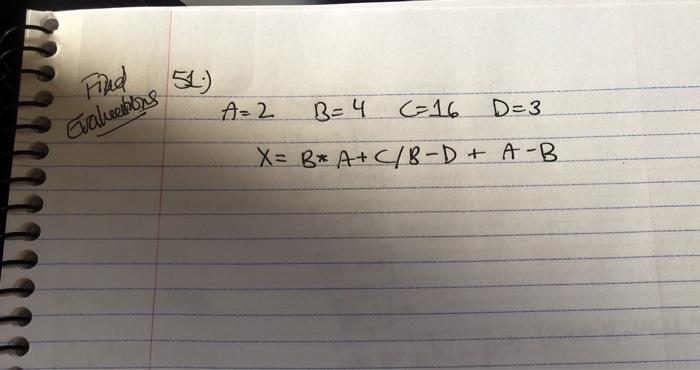 Find
Evaluations
51.)
A=2 B=4 C=16 D=3
X= B* A+ C/B-D + A-B